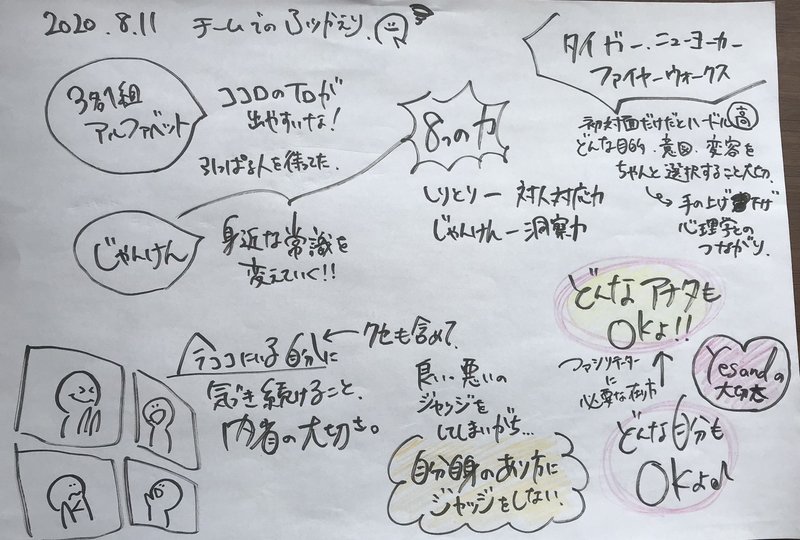 2020.8.11 チームでのふりかえり
3名1組
アルファベット
ココロのTOが
出やすいな!
引っぱる人を待ってた.
8つの力
しりとり ー 対人対応力
じゃんけん ー 洞察力
タイガー.ニューヨーカー
ファイヤーウォークス
初対面だけだとハードル高
どんな目的.意図.変容を
ちゃんと選択すること大切.
手の上げ下げ
心理学との
つながり.
じゃんけん
身近な常識を
変えていく!!
今ココにいる自分に
クセも含めて.
気づき続けること.
内省の大切さ。
良い.悪いの
ジャッジを
してしまいがち...
自分自身のあり方に
ジャッジをしない.
どんなアナタも
OKよ!!
ファシリテーター
に
必要な在り方
Yesandの
大切さ
どんな自分も
OKよ♪